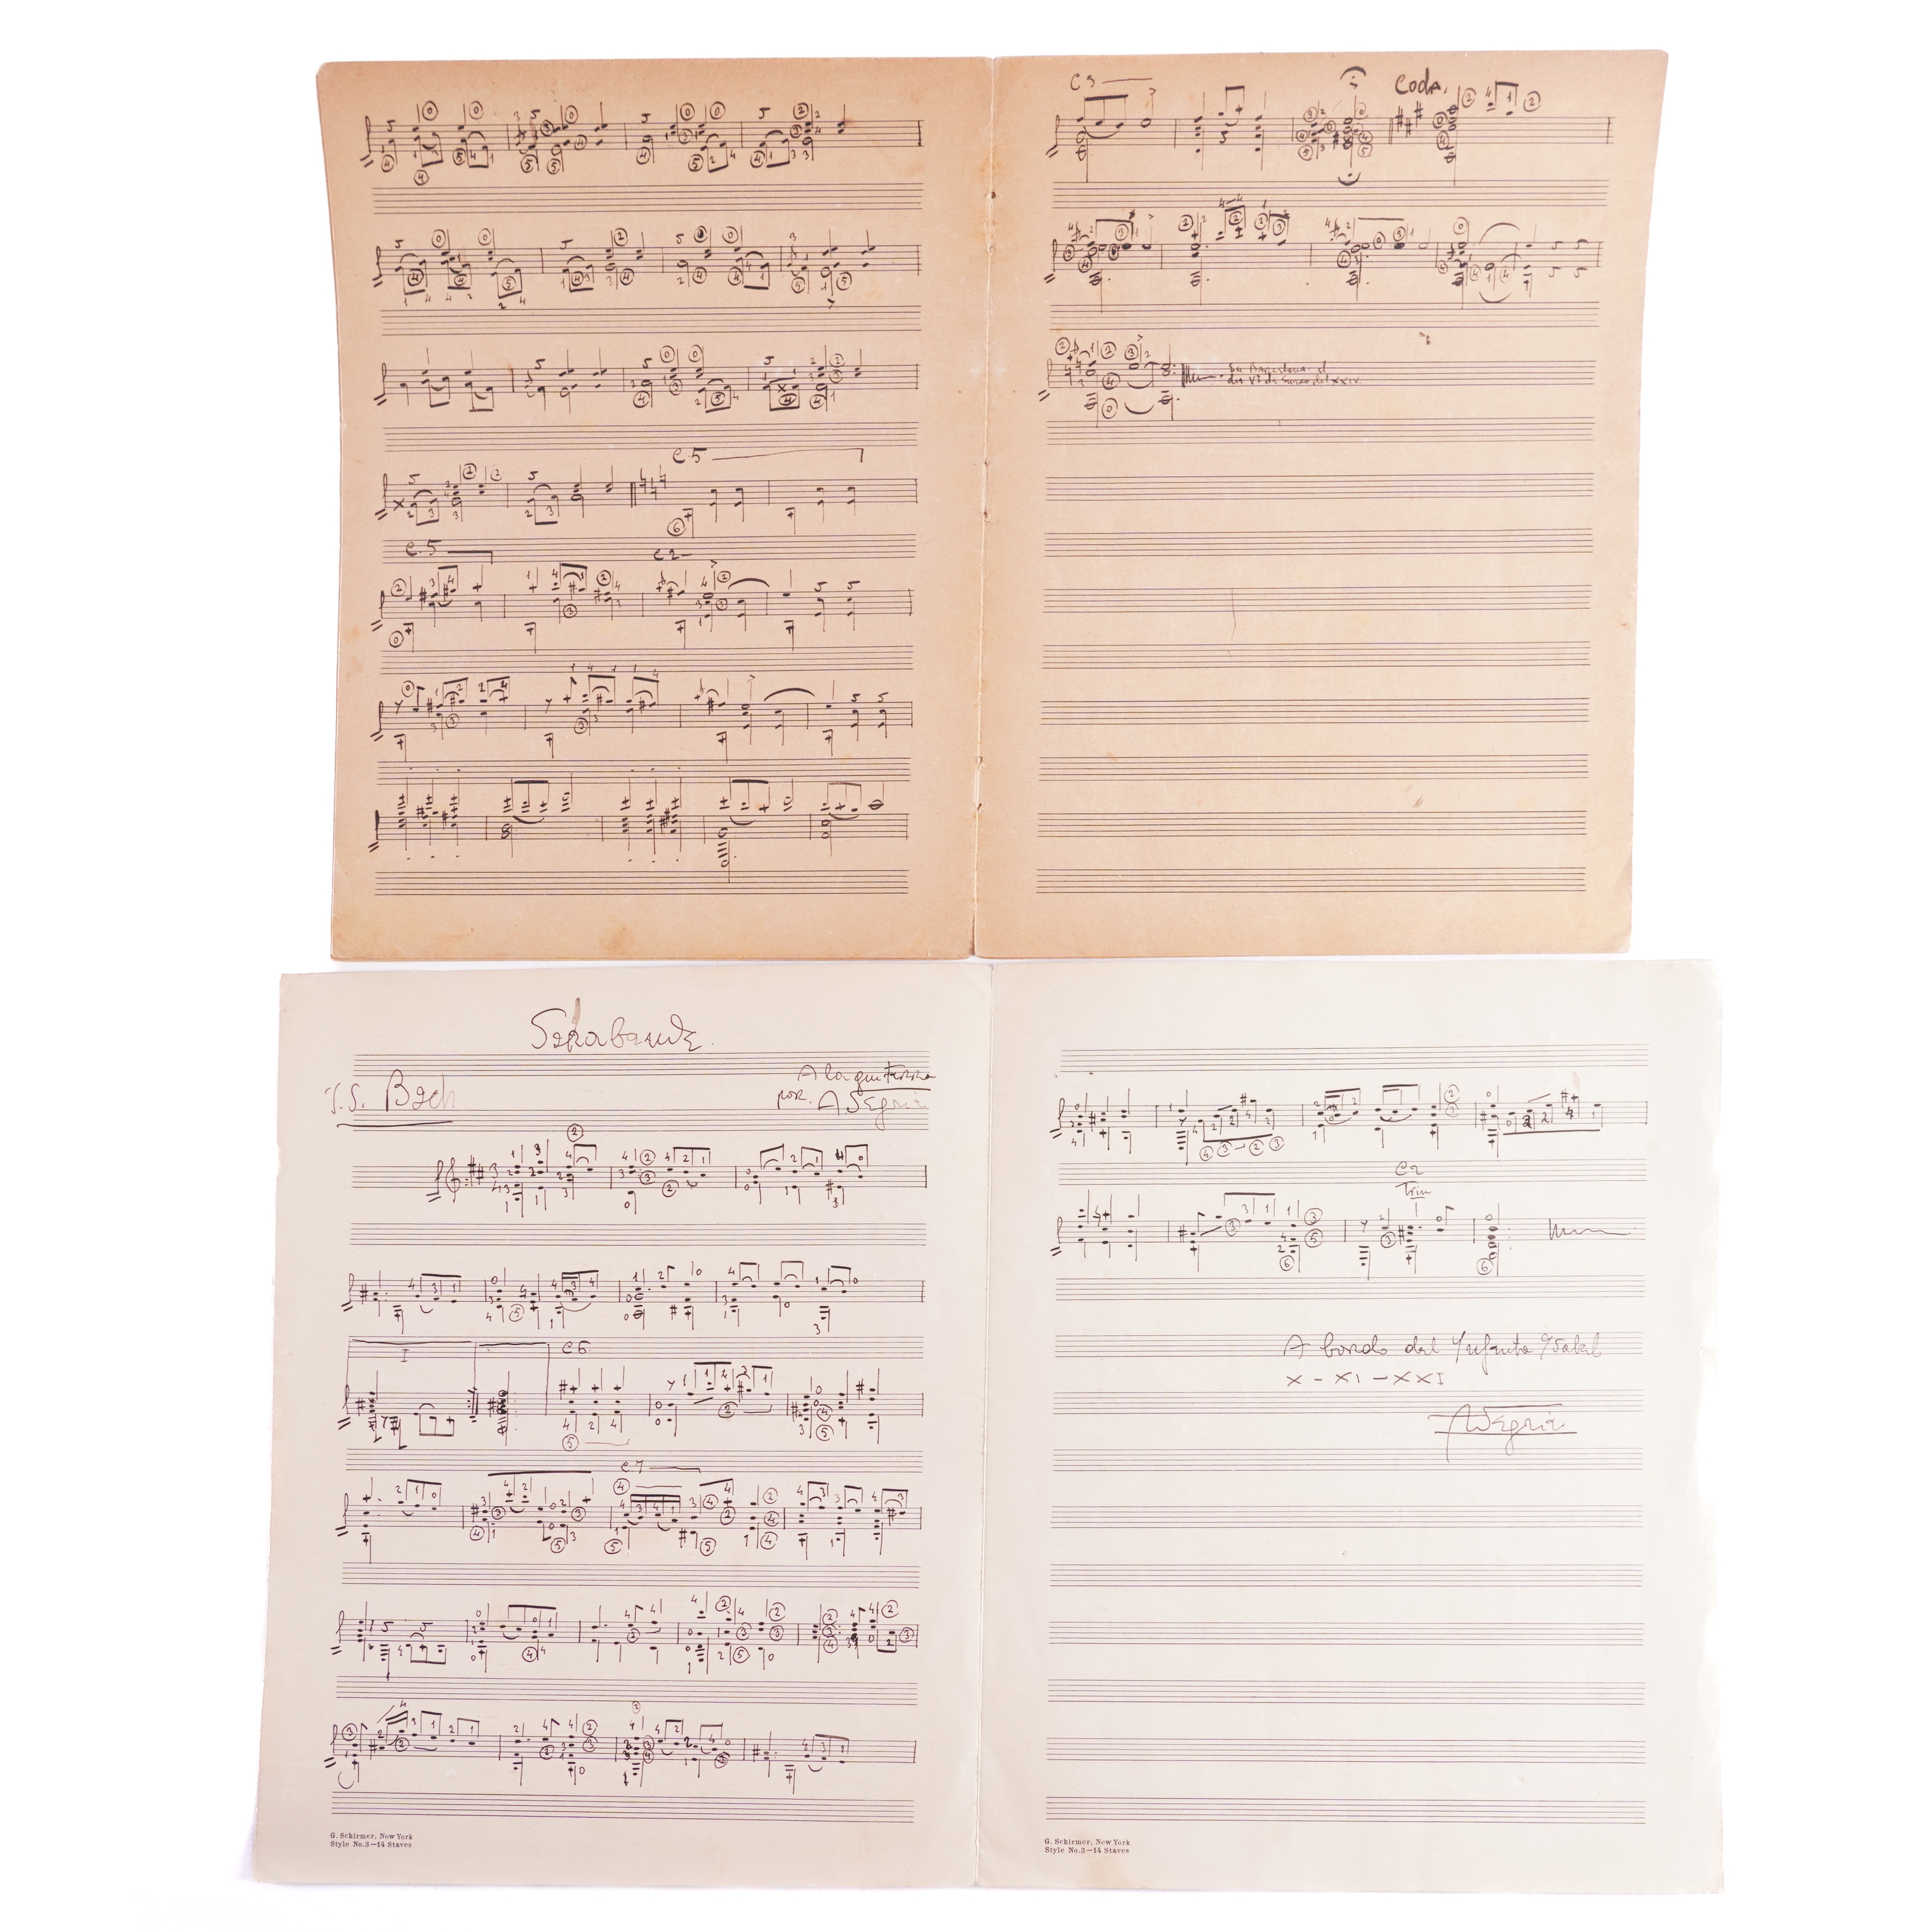 C3
Coda.
En Barcelona el
dia VI de Enero del XXIV.
C5
C5
C2
Sarabande
J. S. Bach
A la guitarra
por. ASegovia
I
C6
C7
G. Schirmer, New York
Style No.3—14 Staves
C2
A bordo del Infanta Isabel
X - XI - XXI
ASegovia
G. Schirmer, New York
Style No.3—14 Staves